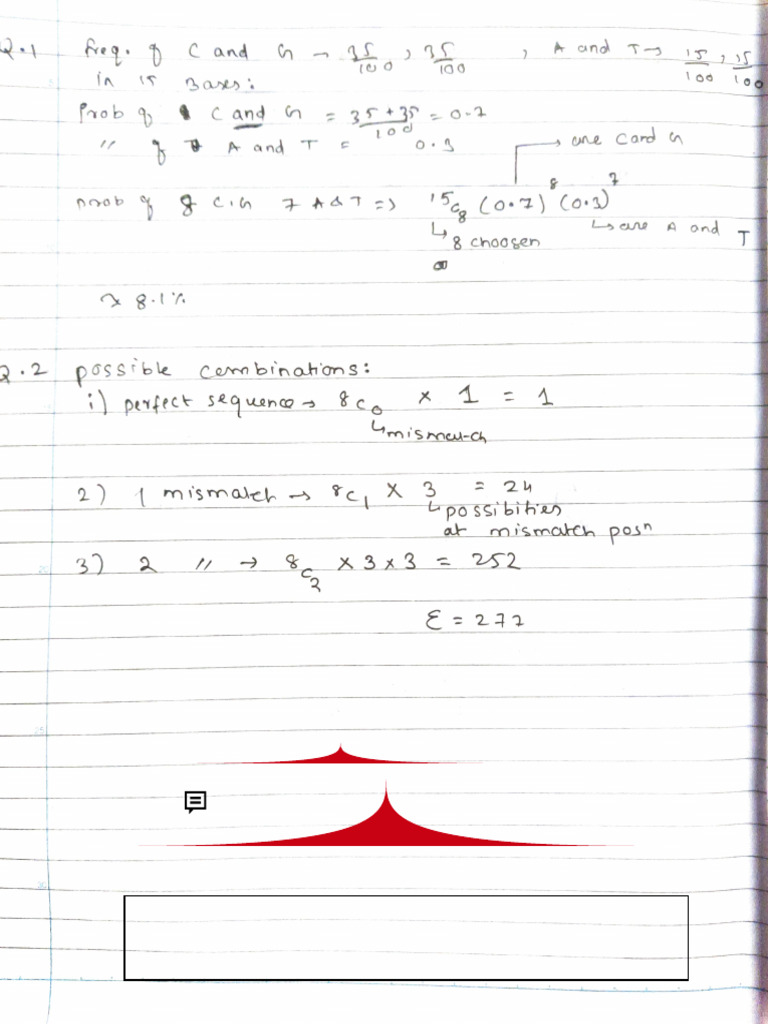 Q.1 freq. of C and G → 35/100, 35/100, A and T → 15/100, 15/100
in 15 Bases:
Prob of C and G = 35+35/100 = 0.7
" of A and T = 0.3
→ are C and G
prob of 8 C.G 7 A & T => 15C8 (0.7)^8 (0.3)^7
↳ 8 choosen
↳ are A and T
≈ 8.1%
Q.2 possible combinations:
i) perfect sequence → 8C0 × 1 = 1
↳ mismatch
2) 1 mismatch → 8C1 × 3 = 24
↳ possibities
at mismatch posn
3) 2 " → 8C2 × 3 × 3 = 252
Σ = 277